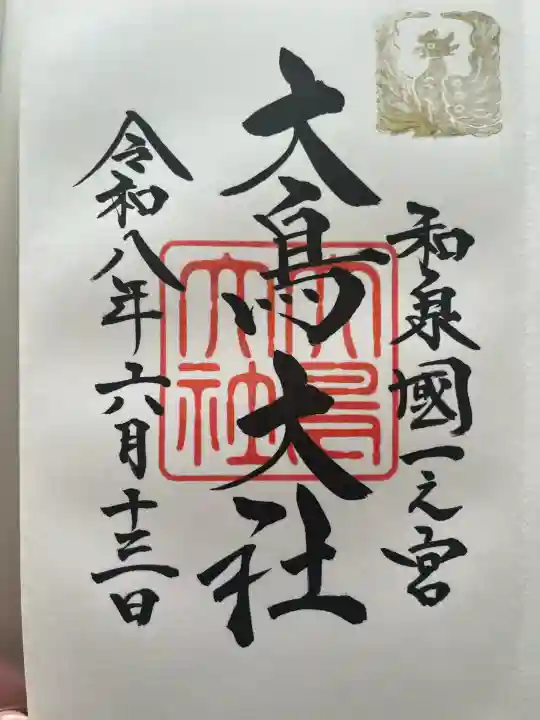 和泉國一之宮
大鳥大社
大鳥
大社
令和八年六月十三日